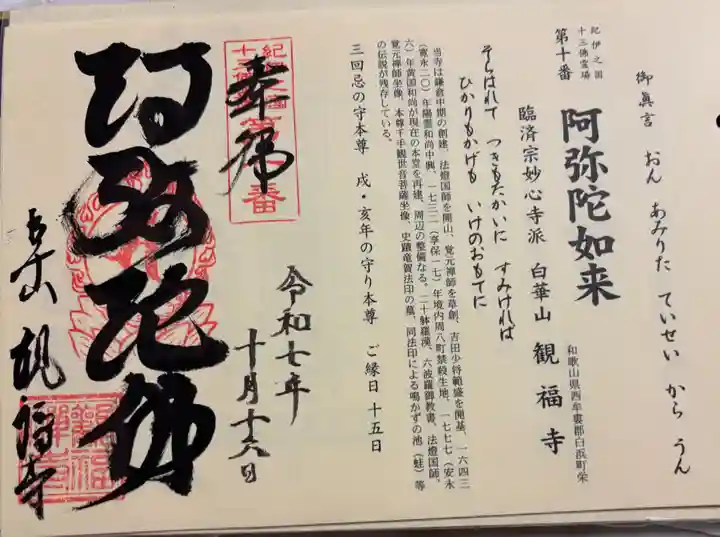 御眞言 おん あみりた ていせい から うん
紀伊之国
十三佛霊場
第十番 阿弥陀如来
和歌山県西牟婁郡白浜町栄
臨済宗妙心寺派 白華山 観福寺
そらはれて つきもたかいに すみければ
ひかりもかげも いけのおもてに
当寺は鎌倉中期の創建、法燈国師を開山、覚元禅師を草創、吉田少将範盛を開基、一六四三
(寛永二〇)年陽雲和尚中興、一七三二(享保一七)年境内周八町禁殺生地、一七七七(安永
六)年黄国和尚が現在の本堂を再建、周辺の整備なる。二十躰羅漢、六波羅御教書、法燈国師、
覚元禅師坐像、本尊千手観世音菩薩坐像、史蹟竜賀法印の墓、同法印による鳴かずの池(蛙)等
の伝説が残存している。
三回忌の守本尊 戌・亥年の守り本尊 ご縁日 十五日
紀伊之国
十三佛
第十番
奉拝
令和七年
十月十六日
阿弥陀佛
観福寺